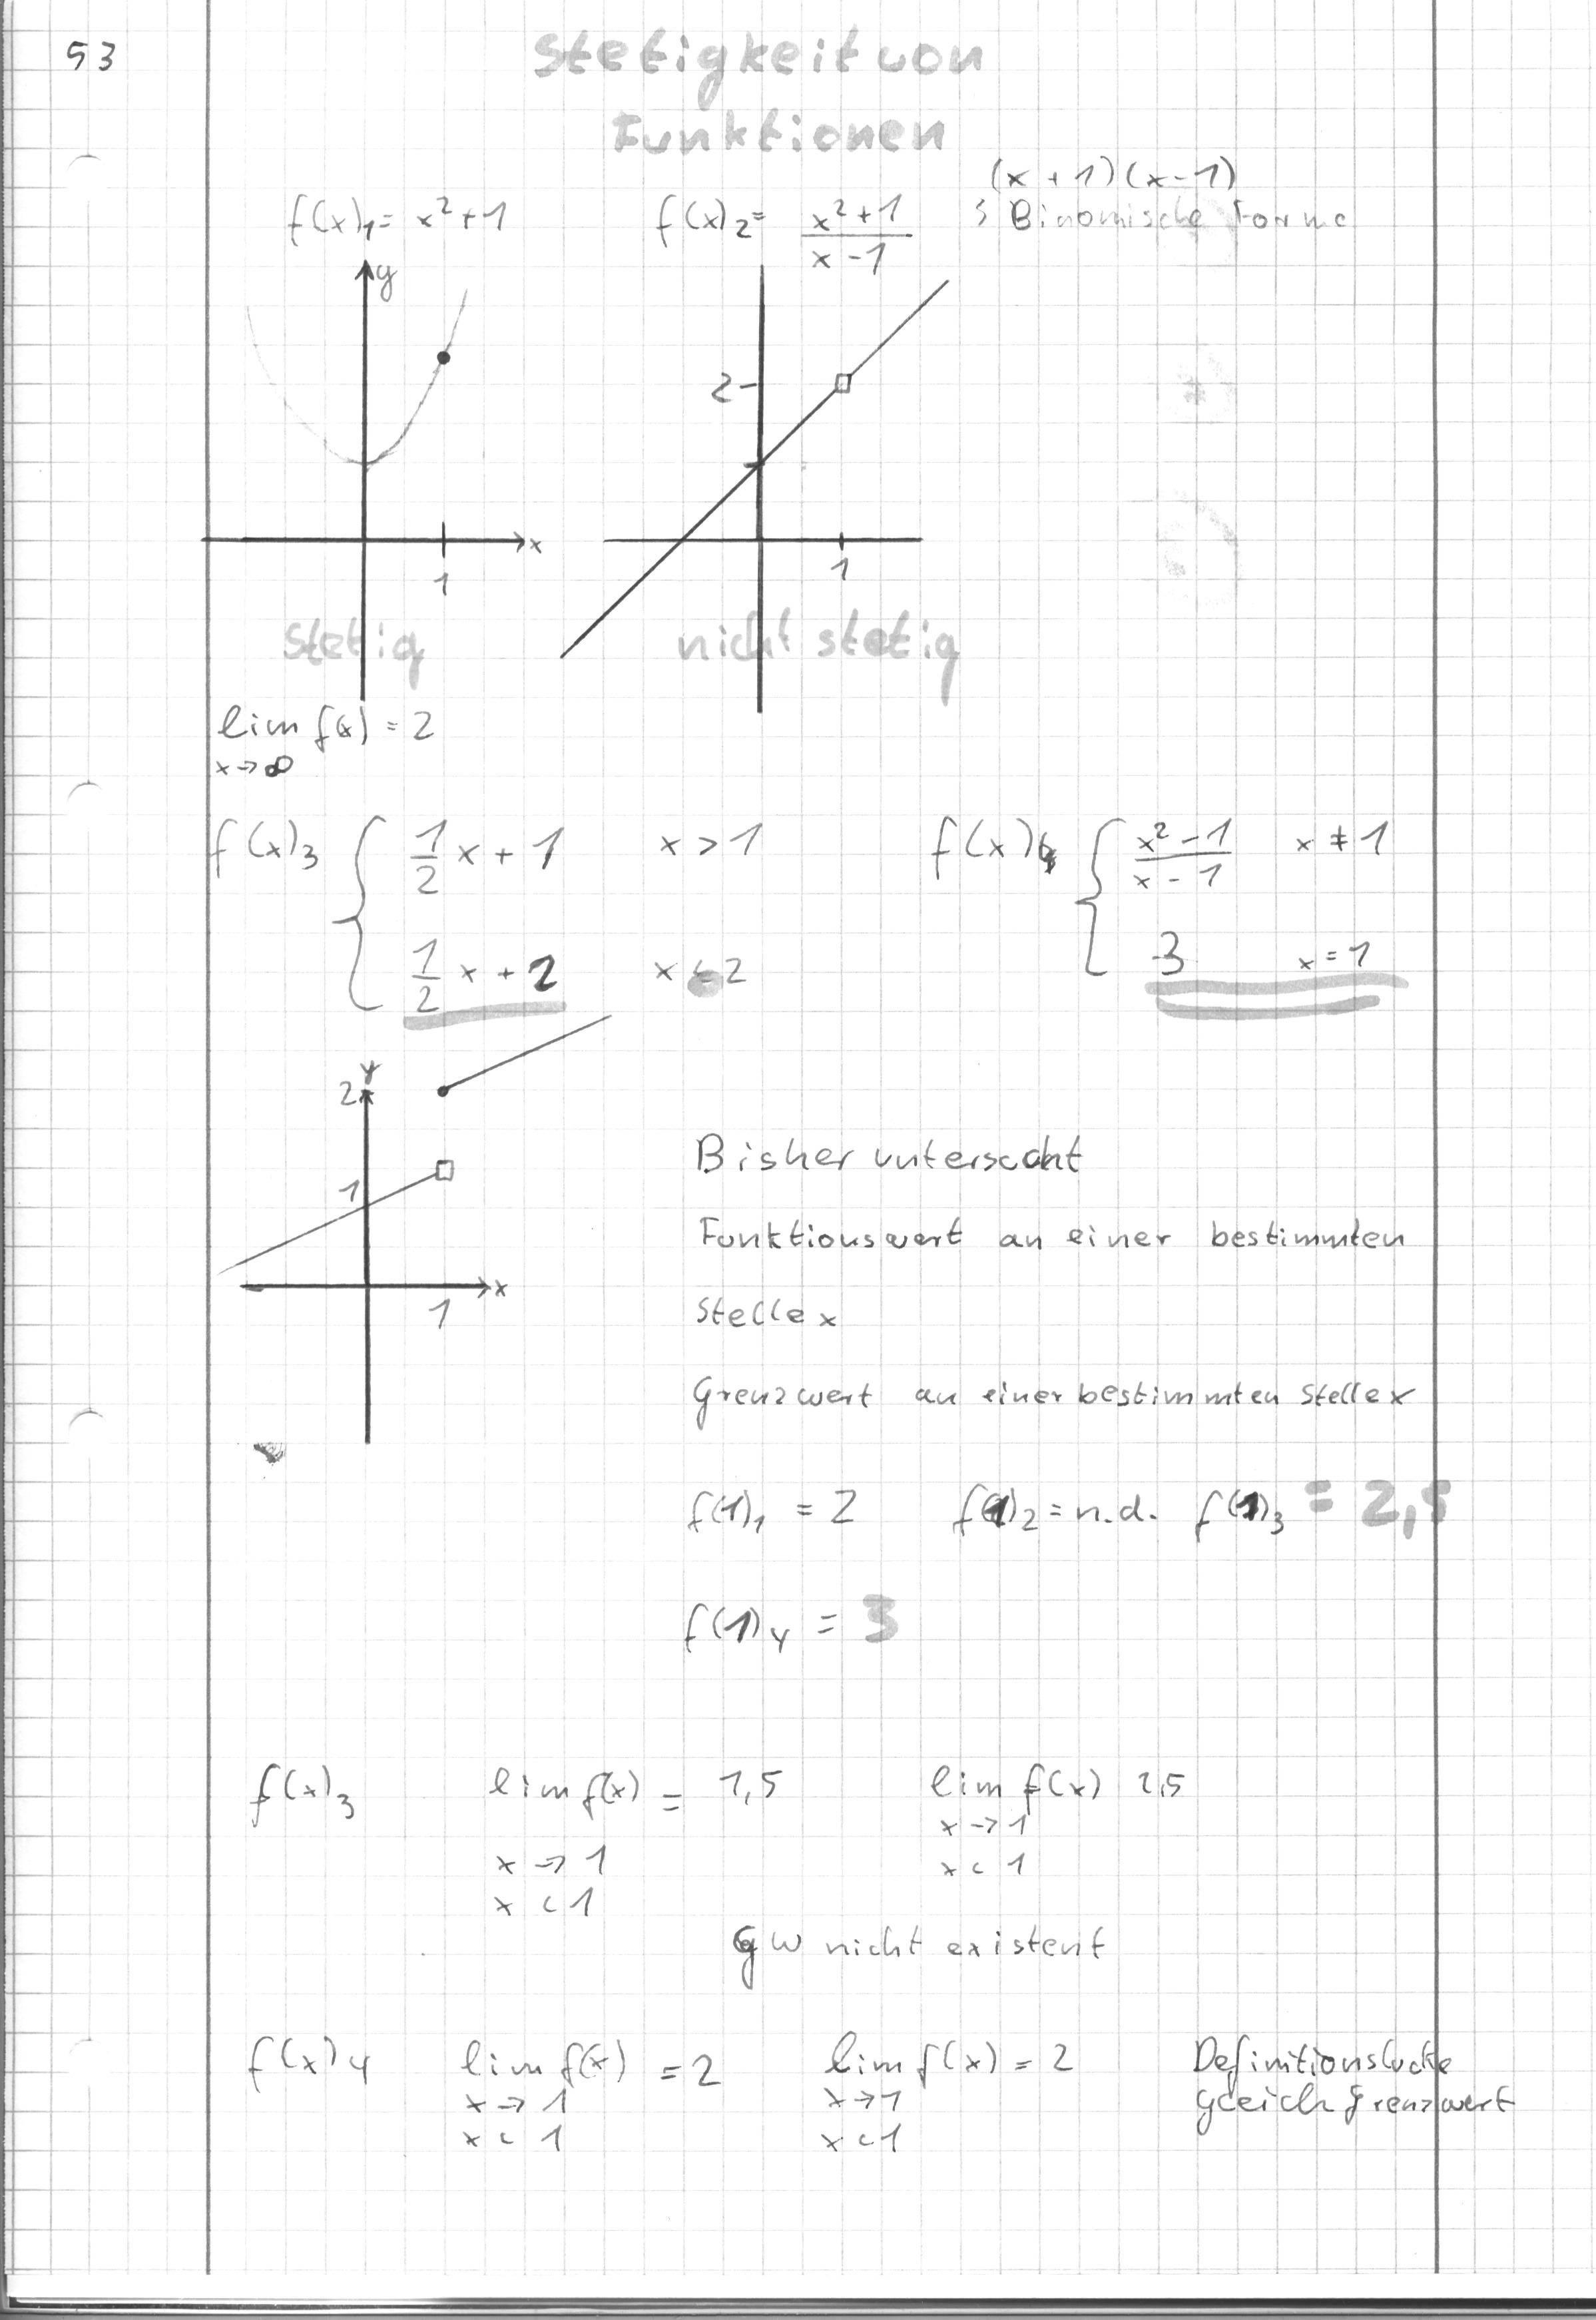 53
Stetigkeit von
Funktionen
(x + 1)(x - 1)
f(x)₁ = x² + 1 f(x)₂ = (x² + 1)/(x - 1) 3 Binomische
y
2
x
1 1
stetig nicht stetig
lim f(x) = 2
x → ∞
f(x)₃ { 1/2 x + 1 x > 1 f(x)₄ { (x² - 1)/(x - 1) x ≠ 1
1/2 x + 2 3 x = 1
y
2
Bisher untersucht
1
Funktionswert an einer bestimmten
x
1 Stelle x
Grenzwert an einer bestimmten Stelle x
f(1)₁ = 2 f(1)₂ = n.d. f(1)₃ = 2,5
f(1)₄ = 3
f(x)₃ lim f(x) = 1,5 lim f(x) 2,5
x → 1 x → 1
x < 1 x < 1
GW nicht existent
f(x)₄ lim f(x) = 2 lim f(x) = 2 Definitionslücke
x → 1 x → 1 gleich Grenzwert
x < 1 x < 1